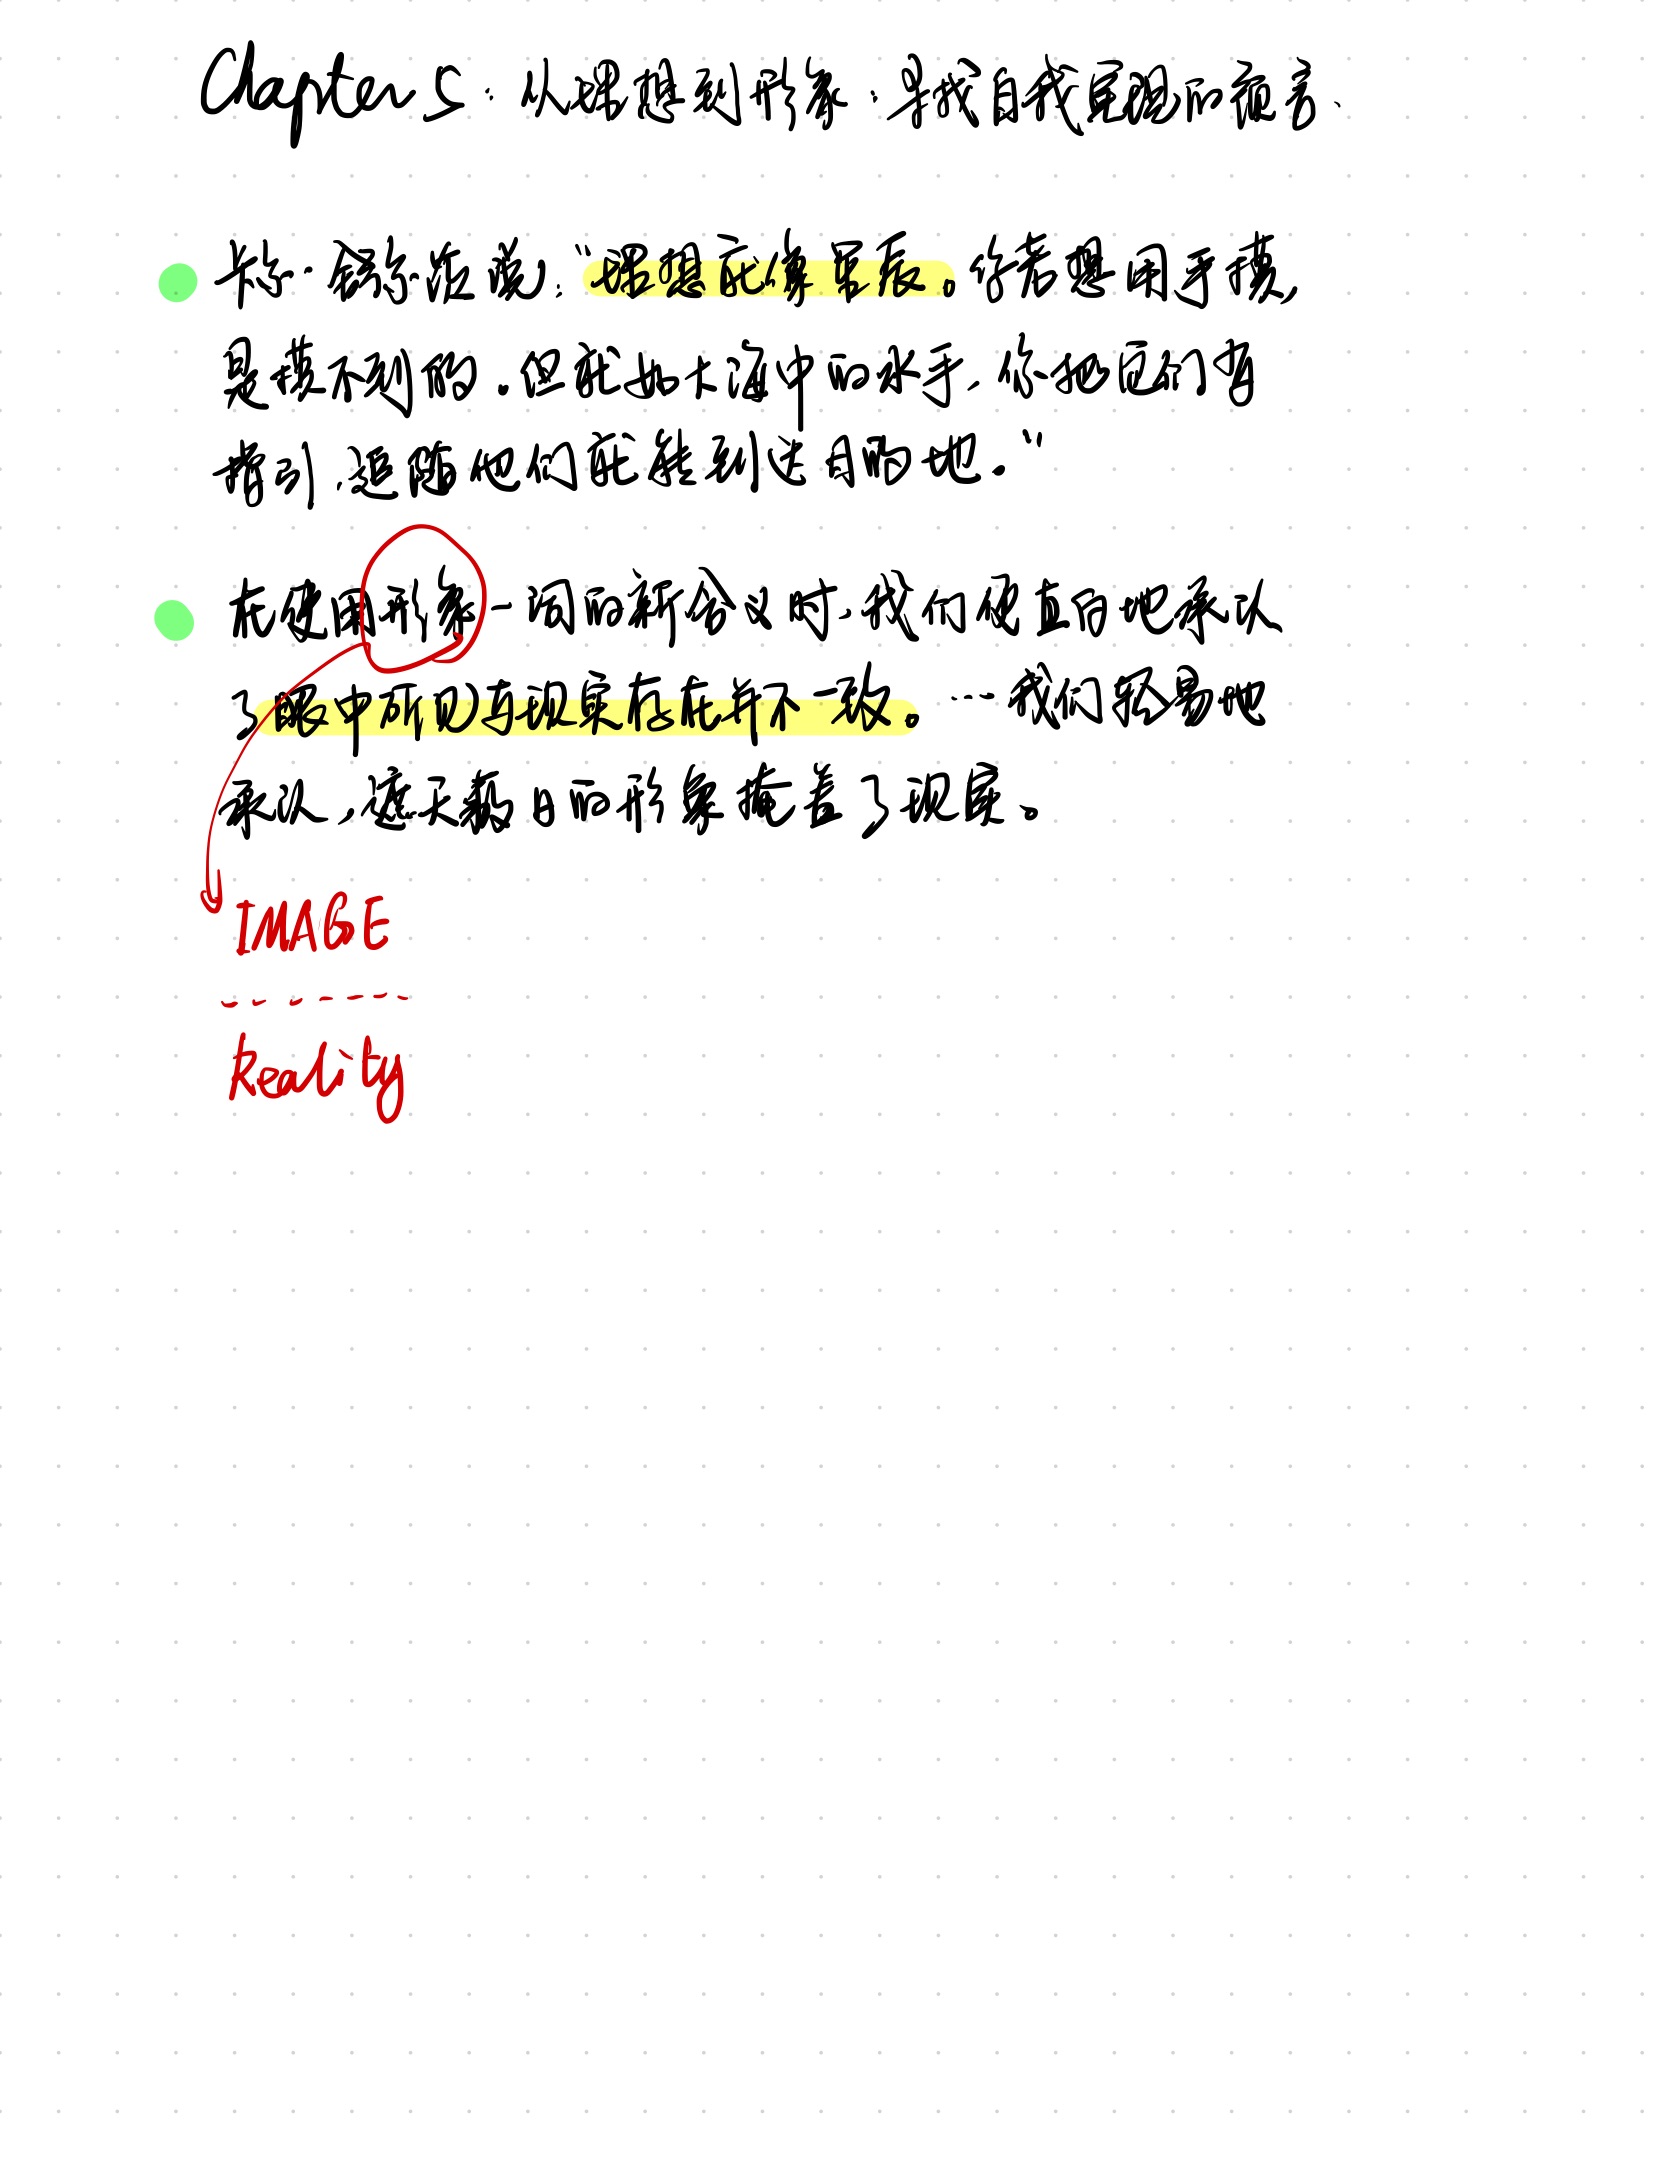 Chapter 5：从理想到形象：寻找自我实现的预言、
卡尔·舒尔茨说：“理想就像星辰。你若想用手摸，
是摸不到的。但就如大海中的水手，你把它们当
指引，追随他们就能到达目的地。”
在使用形象一词的新含义时，我们便直白地承认
了眼中所见与现实存在并不一致。…我们轻易地
承认，遮天蔽日的形象掩盖了现实。
IMAGE
Reality